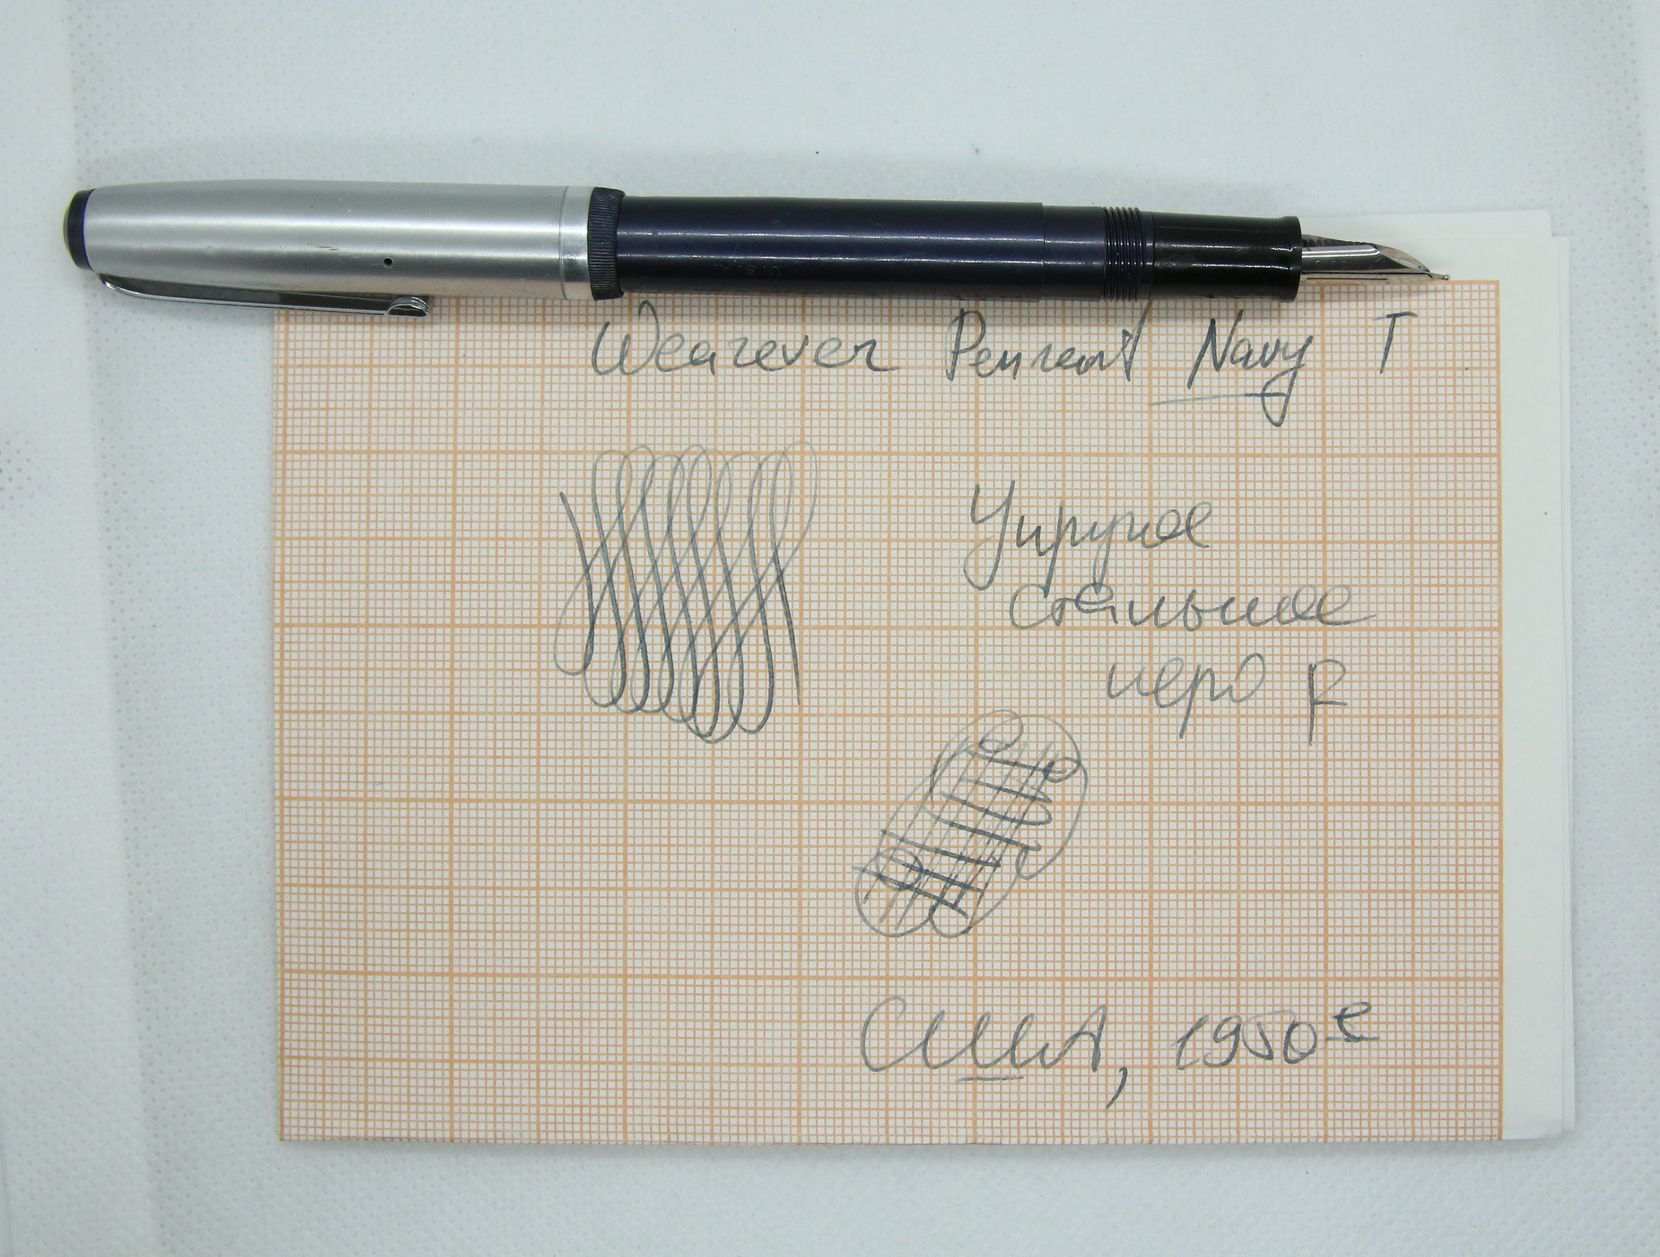 Wearever Pennant Navy T
Упругое
стальное
перо F
США, 1950е